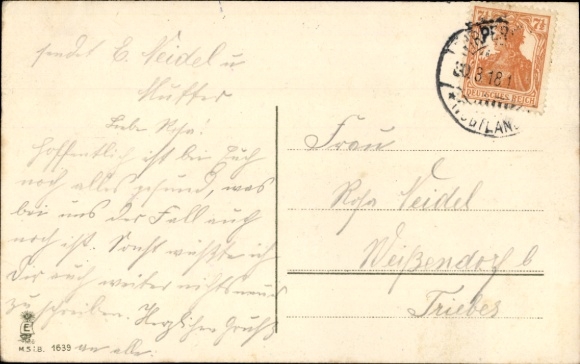 sendet E. Neidel u
Mutter
Liebe Rosa!
Hoffentlich ist bei Euch
noch alles gesund, was
bei uns der Fall auch
noch ist. Sonst wüßte ich
Dir auch weiter nichts neues
zu schreiben. Herzlichen Gruß
an alle.
M.S.i.B. 1639
7½ 7½
DEUTSCHES REICH
8.18.1
VOGTLAND
Frau
Rosa Neidel
Weißendorf b
Triebes